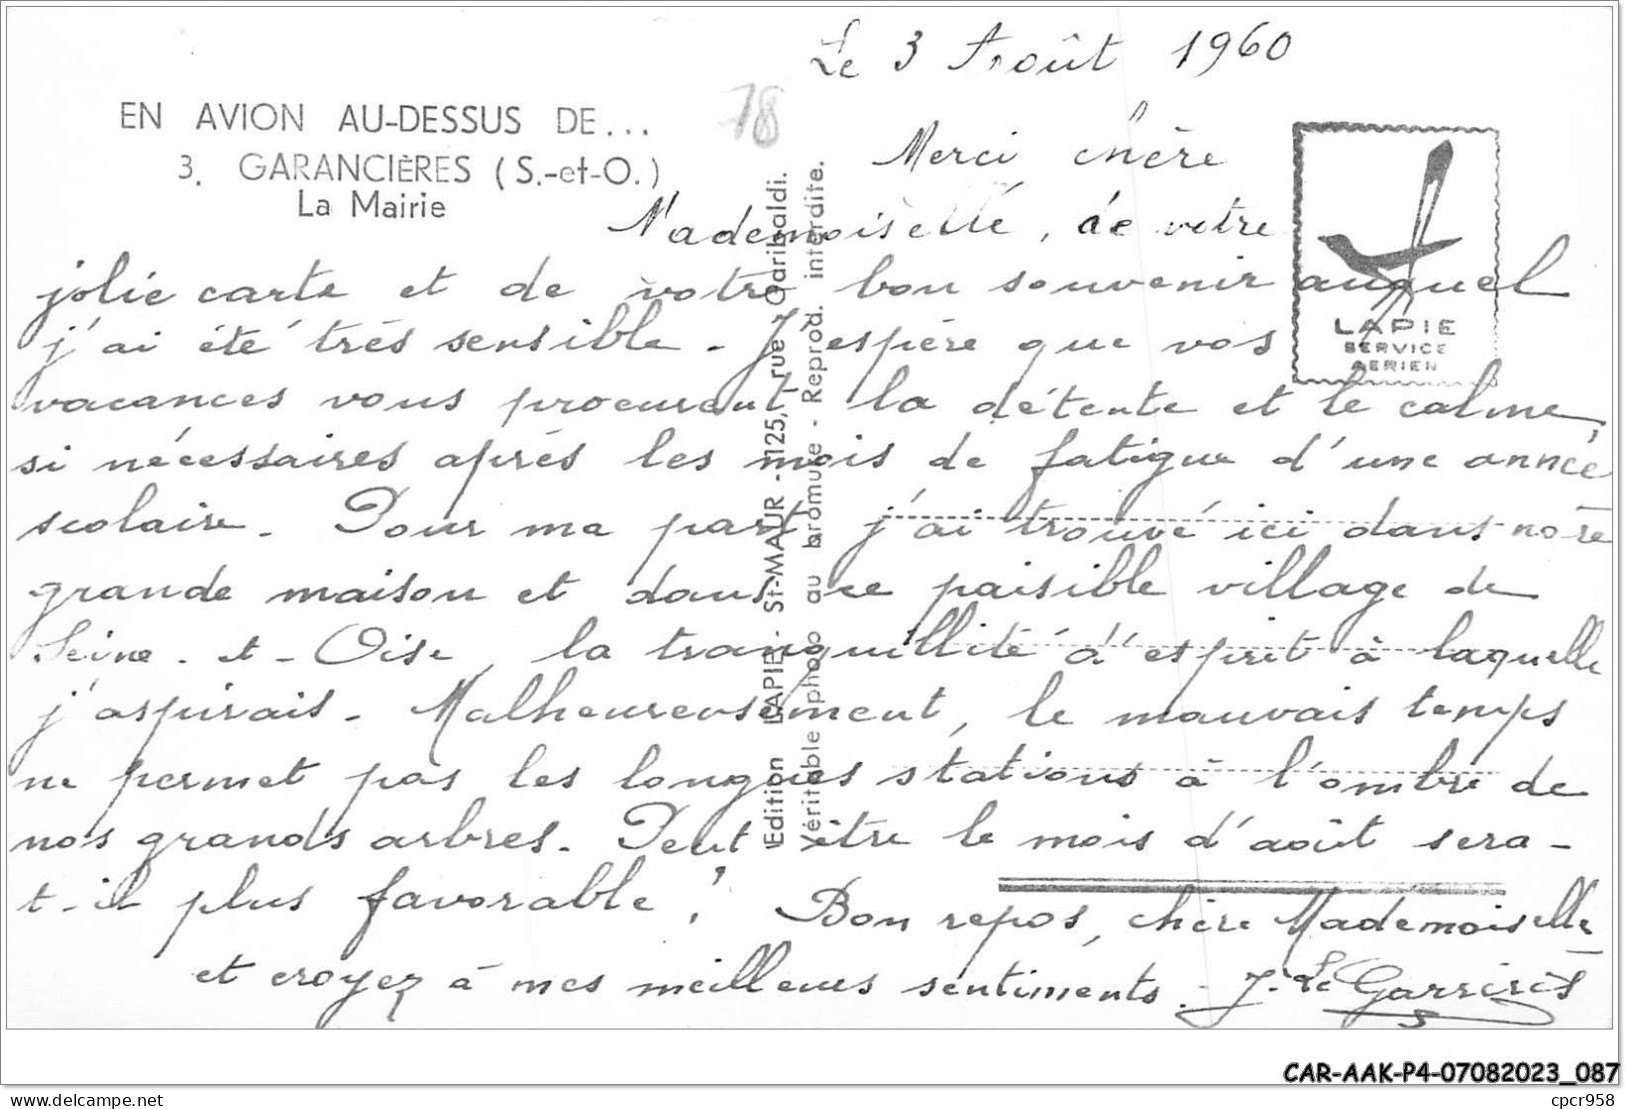 Le 3 Août 1960
78
EN AVION AU-DESSUS DE...
3. GARANCIÈRES (S.-et-O.)
La Mairie
Merci chère
Mademoiselle, de votre
jolie carte et de votre bon souvenir auquel
j'ai été très sensible. J'espère que vos
vacances vous procurent la détente et le calme
si nécessaires après les mois de fatigue d'une année
scolaire. Pour ma part j'ai trouvé ici dans notre
grande maison et dans ce paisible village de
Seine-et-Oise, la tranquillité d'esprit à laquelle
j'aspirais. Malheureusement, le mauvais temps
ne permet pas les longues stations à l'ombre de
nos grands arbres. Peut être le mois d'août sera-
t-il plus favorable! Bon repos, chère Mademoiselle
et croyez à mes meilleurs sentiments.
J. Le
LAPIE
SERVICE
AERIEN
Edition LAPIE - St-MAUR - 125, rue Garibaldi.
Véritable photo au bromure - Reprod. interdite.
CAR-AAK-P4-07082023_087
delcampe.net
cpcr958